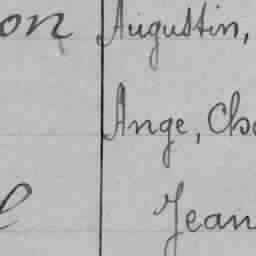 on Augustin,
Ange, Cha
Jean